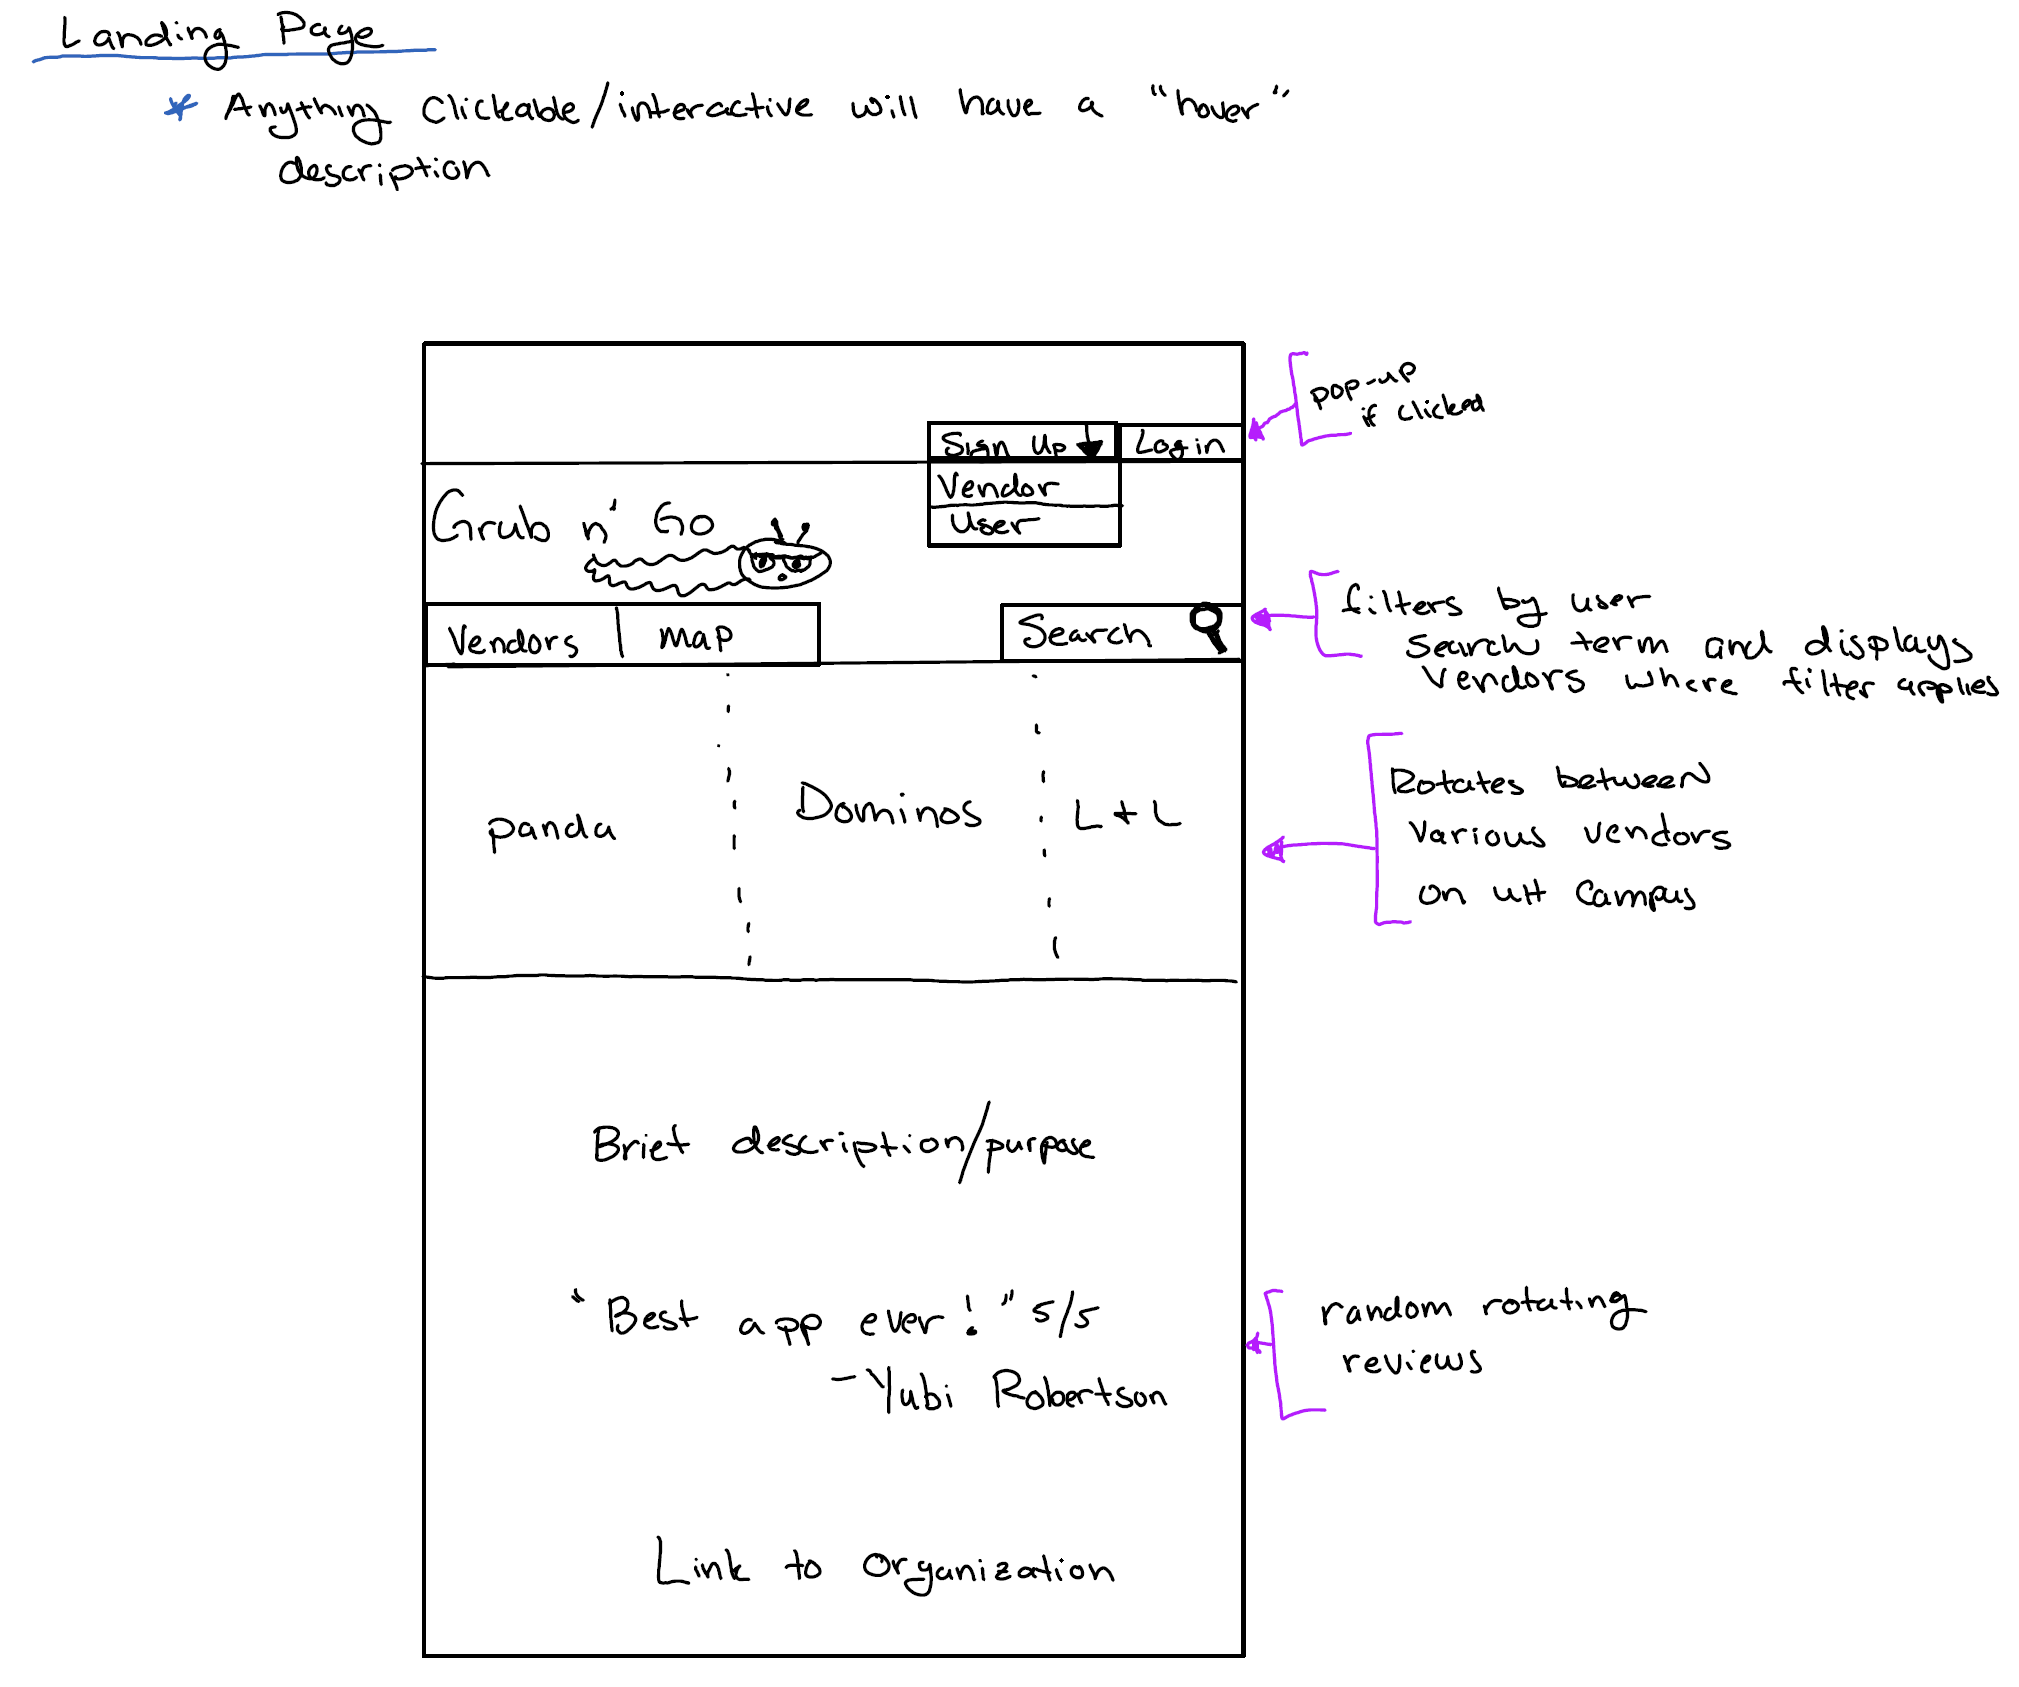 Landing Page
* Anything Clickable/interactive will have a "hover"
description
pop-up
if clicked
Sign Up Login
Vendor
User
Grub n' Go
Vendors | map
Search
filters by user
search term and displays
Vendors where filter applies
panda
Dominos
L + L
Rotates between
various vendors
on UH Campus
Brief description/purpose
"Best app ever!" 5/5
- Yubi Robertson
random rotating
reviews
Link to Organization